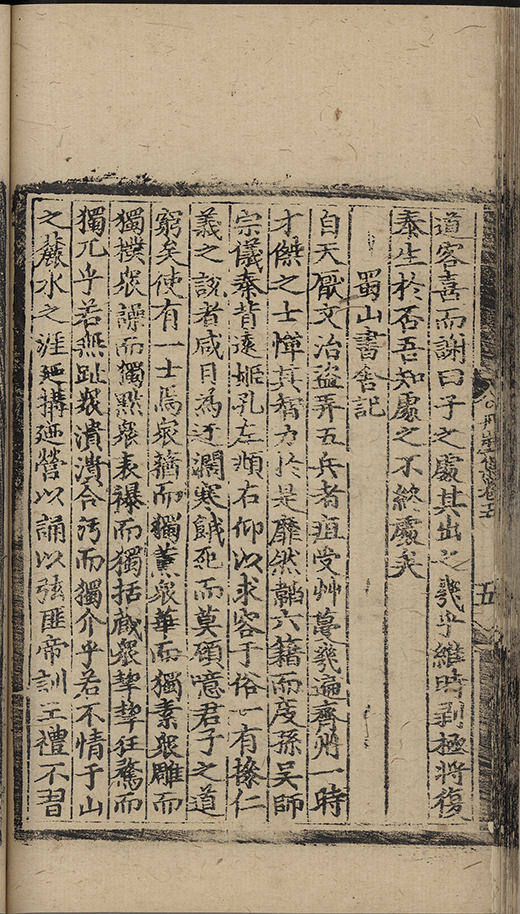 道容喜而謝曰子之處其出之幾乎維時剥極將復
泰生於否吾知處之不終處矣
蜀山書舍記
自天厭文治盜弄五兵者疽受艸蔓幾遍齊州一時
才傑之士憚其智力於是靡然韜六藉而度孫吳師
宗儀秦背遠姬孔左頫右仰以求容于俗一有掾仁
義之説者咸目為迂濶寒餓死而莫顧噫君子之道
窮矣使有一士焉衆蕕而獨薰衆華而獨素衆雕而
獨樸衆譟而獨黙衆表襮而獨括戚衆挈挈狂騖而
獨兀乎若無趾衆潰潰合汚而獨介乎若不情于山
之麓水之涯廼搆廼營以誦以弦匪帝訓王禮不習
五